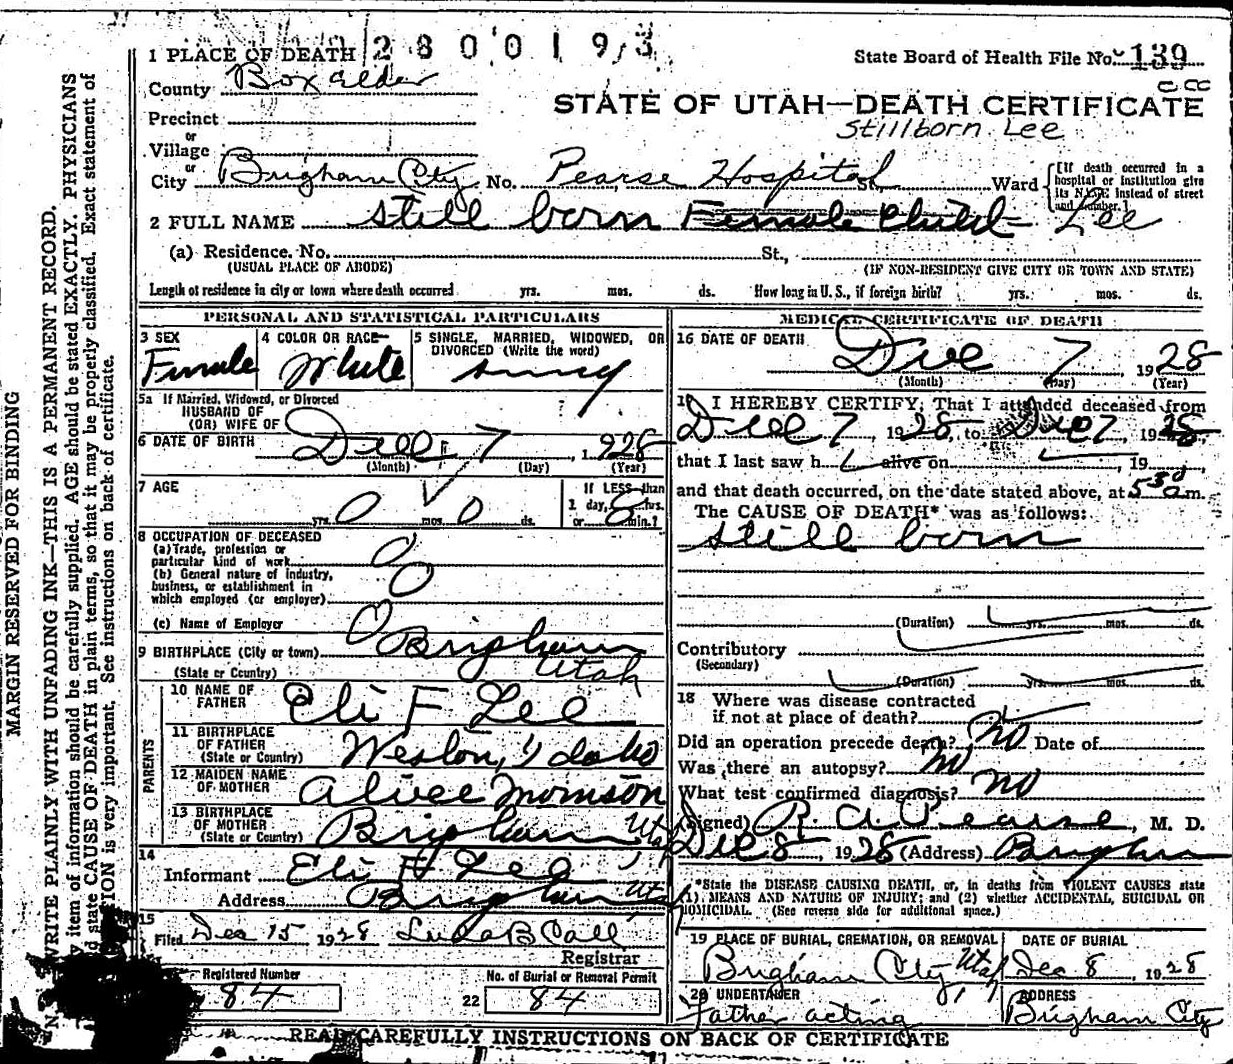 1 PLACE OF DEATH 2800193
State Board of Health File No. 139
County Box Elder
STATE OF UTAH—DEATH CERTIFICATE
Stillborn Lee
Precinct
or
Village
or
City Brigham City No. Pearse Hospital St. Ward
[If death occurred in a hospital or institution give its NAME instead of street and number.]
2 FULL NAME still born Female Child Lee
(a) Residence. No. St.,
(USUAL PLACE OF ABODE) (IF NON-RESIDENT GIVE CITY OR TOWN AND STATE)
Length of residence in city or town where death occurred yrs. mos. ds. How long in U. S., if foreign birth? yrs. mos. ds.
PERSONAL AND STATISTICAL PARTICULARS
3 SEX
Female
4 COLOR OR RACE
White
5 SINGLE, MARRIED, WIDOWED, OR
DIVORCED (Write the word)
5a If Married, Widowed, or Divorced
HUSBAND OF
(OR) WIFE OF
6 DATE OF BIRTH Dec 7 1928
(Month) (Day) (Year)
7 AGE
0 yrs. mos. 0 ds.
If LESS than
1 day, hrs.
or min.?
8 OCCUPATION OF DECEASED
(a) Trade, profession or
particular kind of work 0
(b) General nature of industry,
business, or establishment in
which employed (or employer) 0
(c) Name of Employer 0
9 BIRTHPLACE (City or town) Brigham
(State or Country) Utah
PARENTS
10 NAME OF
FATHER Eli F Lee
11 BIRTHPLACE
OF FATHER
(State or Country) Weston, Idaho
12 MAIDEN NAME
OF MOTHER Alice Morrison
13 BIRTHPLACE
OF MOTHER
(State or Country) Brigham Utah
14
Informant Eli F Lee
Address Brigham Utah
15
Filed Dec 15 1928 B Call
Registrar
Registered Number
84
22 No. of Burial or Removal Permit
84
MEDICAL CERTIFICATE OF DEATH
16 DATE OF DEATH Dec 7 1928
(Month) (Day) (Year)
17 I HEREBY CERTIFY, That I attended deceased from
Dec 7, 1928, to Dec 7, 1928,
that I last saw h alive on , 19 ,
and that death occurred, on the date stated above, at 5 30 a m.
The CAUSE OF DEATH* was as follows:
still born
(Duration) yrs. mos. ds.
Contributory
(Secondary)
(Duration) yrs. mos. ds.
18 Where was disease contracted
if not at place of death?
Did an operation precede death? no Date of
Was there an autopsy? no
What test confirmed diagnosis? no
(Signed) R. A. Pearse, M. D.
Dec 8, 1928 (Address) Brigham
*State the DISEASE CAUSING DEATH, or, in deaths from VIOLENT CAUSES state
(1) MEANS AND NATURE OF INJURY; and (2) whether ACCIDENTAL, SUICIDAL OR
HOMICIDAL. (See reverse side for additional space.)
19 PLACE OF BURIAL, CREMATION, OR REMOVAL
Brigham City Utah
DATE OF BURIAL
Dec 8, 1928
20 UNDERTAKER
Father acting
ADDRESS
Brigham City
READ CAREFULLY INSTRUCTIONS ON BACK OF CERTIFICATE
MARGIN RESERVED FOR BINDING
WRITE PLAINLY WITH UNFADING INK—THIS IS A PERMANENT RECORD.
item of information should be carefully supplied. AGE should be stated EXACTLY. PHYSICIANS
state CAUSE OF DEATH in plain terms, so that it may be properly classified. Exact statement of
is very important. See instructions on back of certificate.